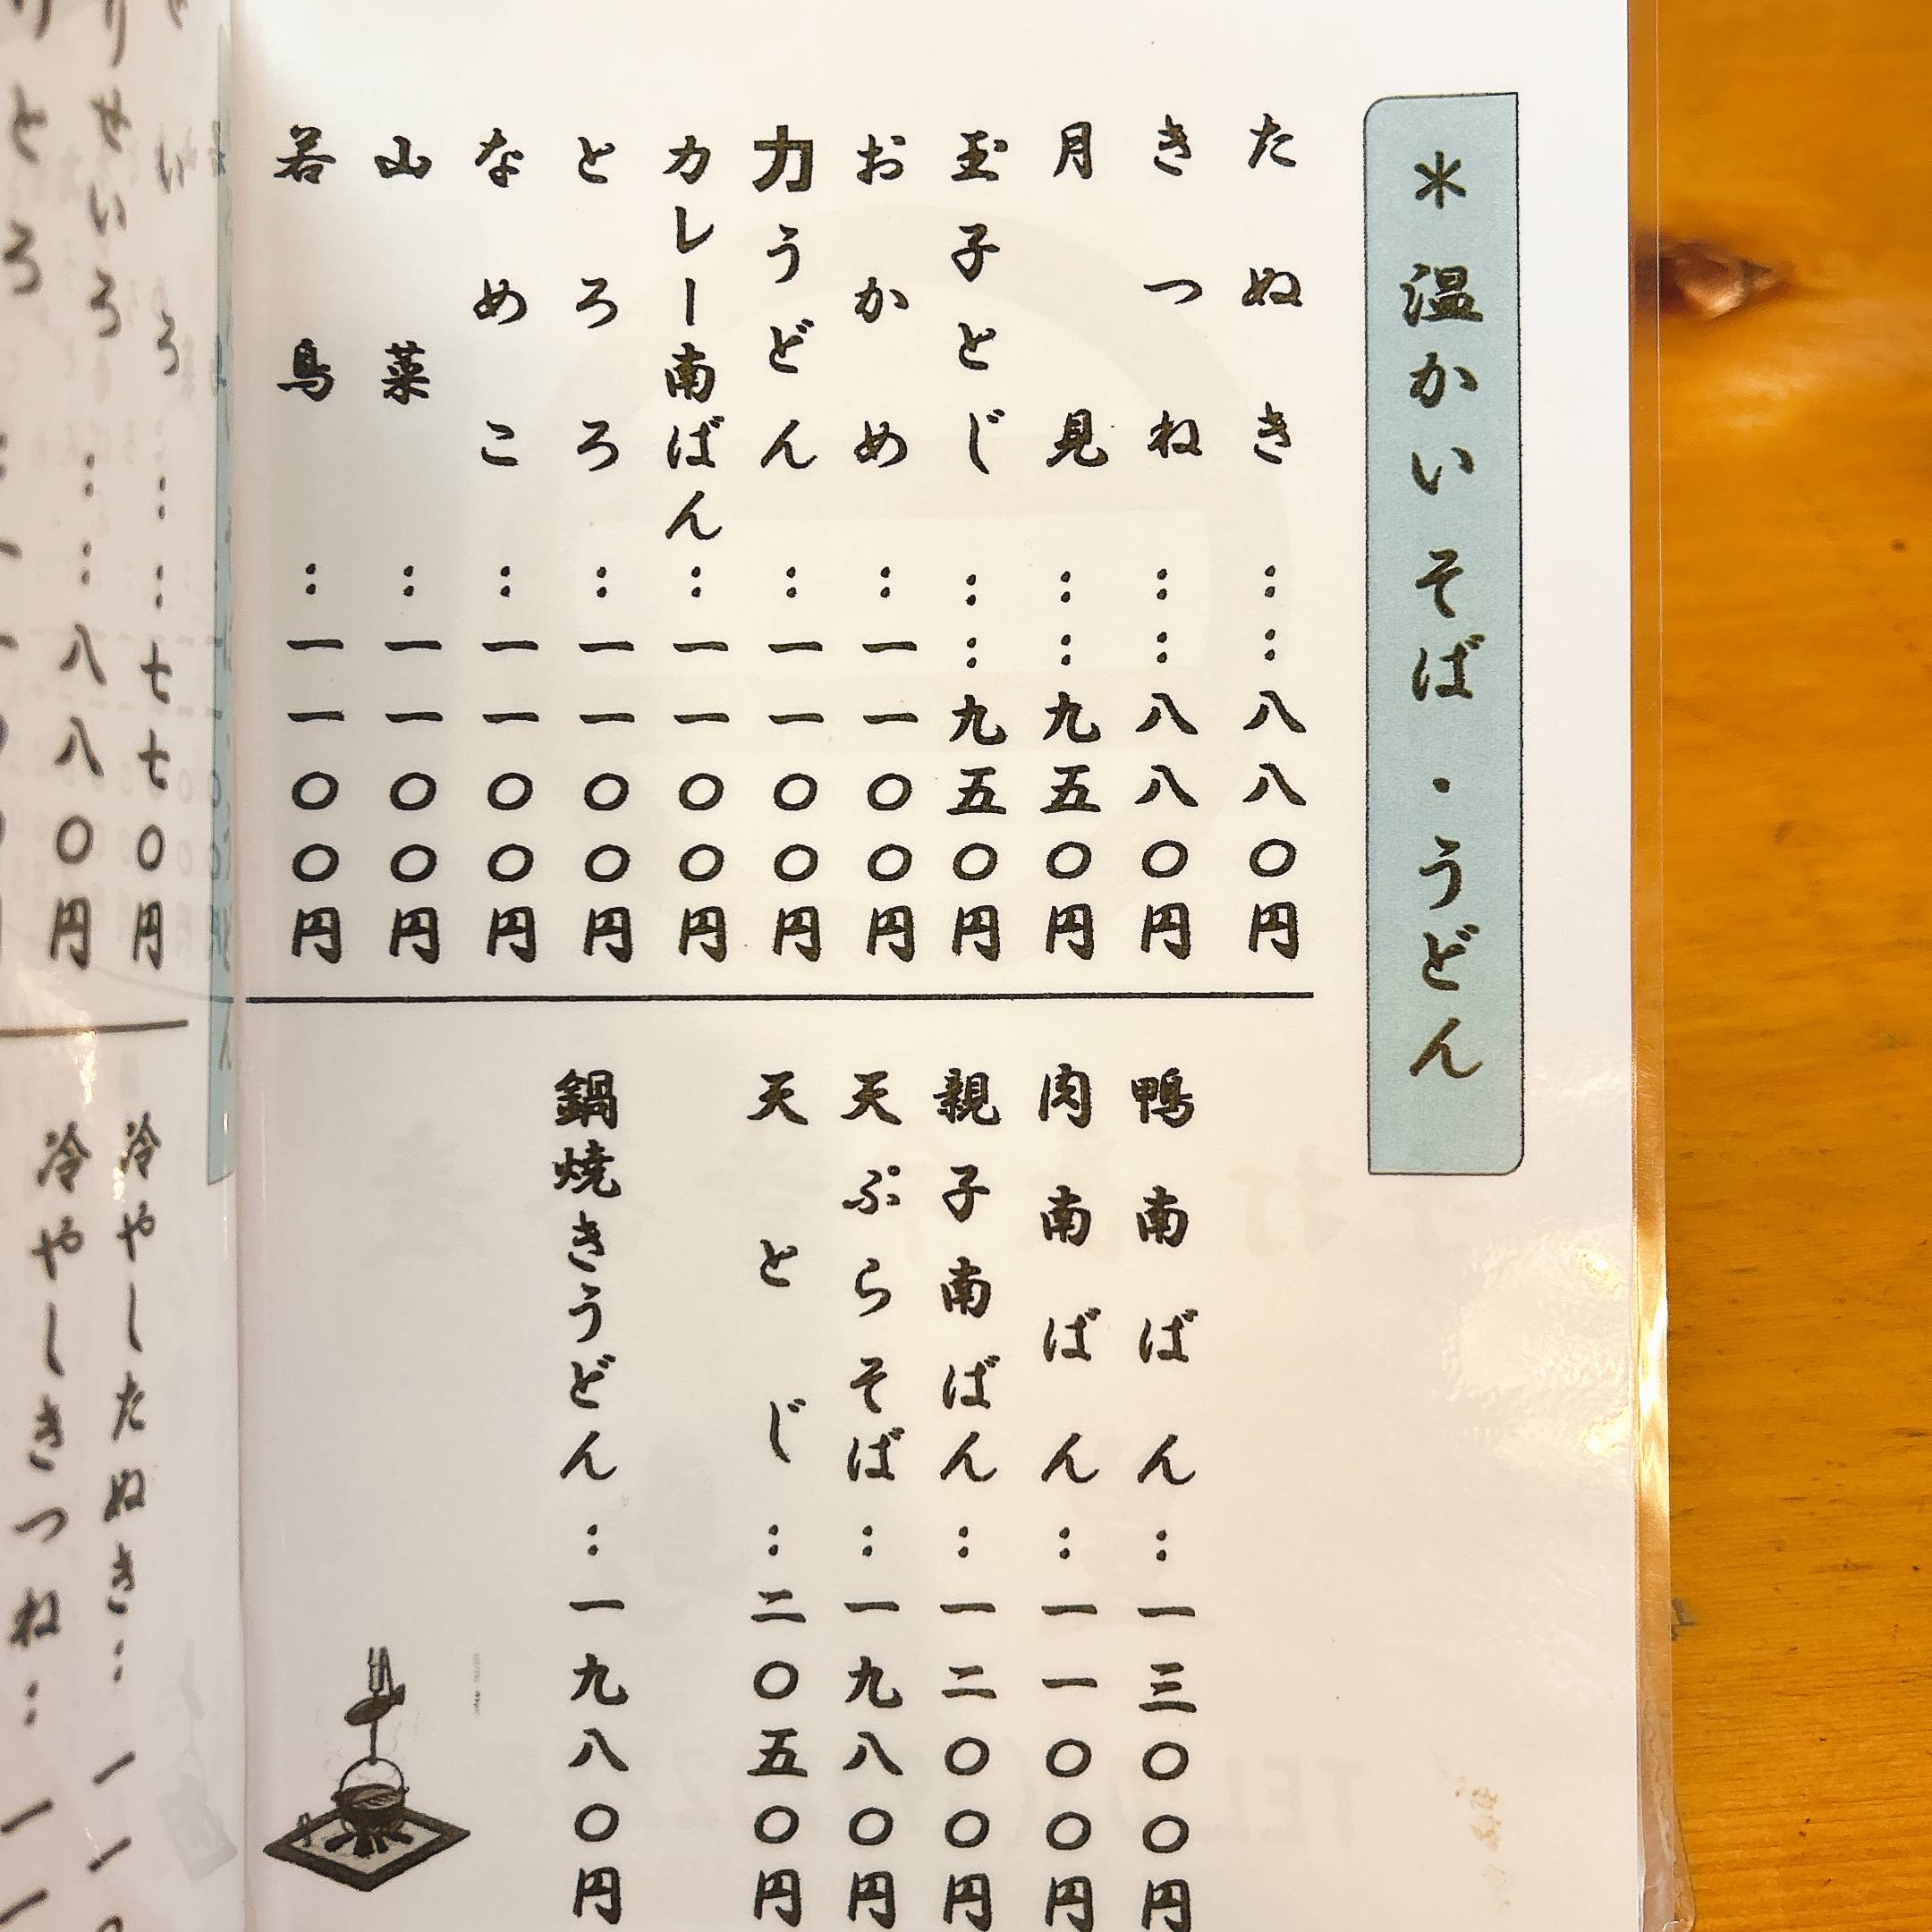 ＊温かいそば・うどん
たぬき：：八八〇円
きつね：：八八〇円
月見：：九五〇円
玉子とじ：：九五〇円
おかめ：一一〇〇円
力うどん：一一〇〇円
カレー南ばん：一一〇〇円
とろろ：一一〇〇円
なめこ：一一〇〇円
山菜：一一〇〇円
若鳥：一一〇〇円
鴨南ばん：一三〇〇円
肉南ばん：一一〇〇円
親子南ばん：一二〇〇円
天ぷらそば：一九八〇円
天とじ：二〇五〇円
鍋焼きうどん：一九八〇円
七七〇円
八八〇円
冷やしたぬき：一一
冷やしきつね：一一